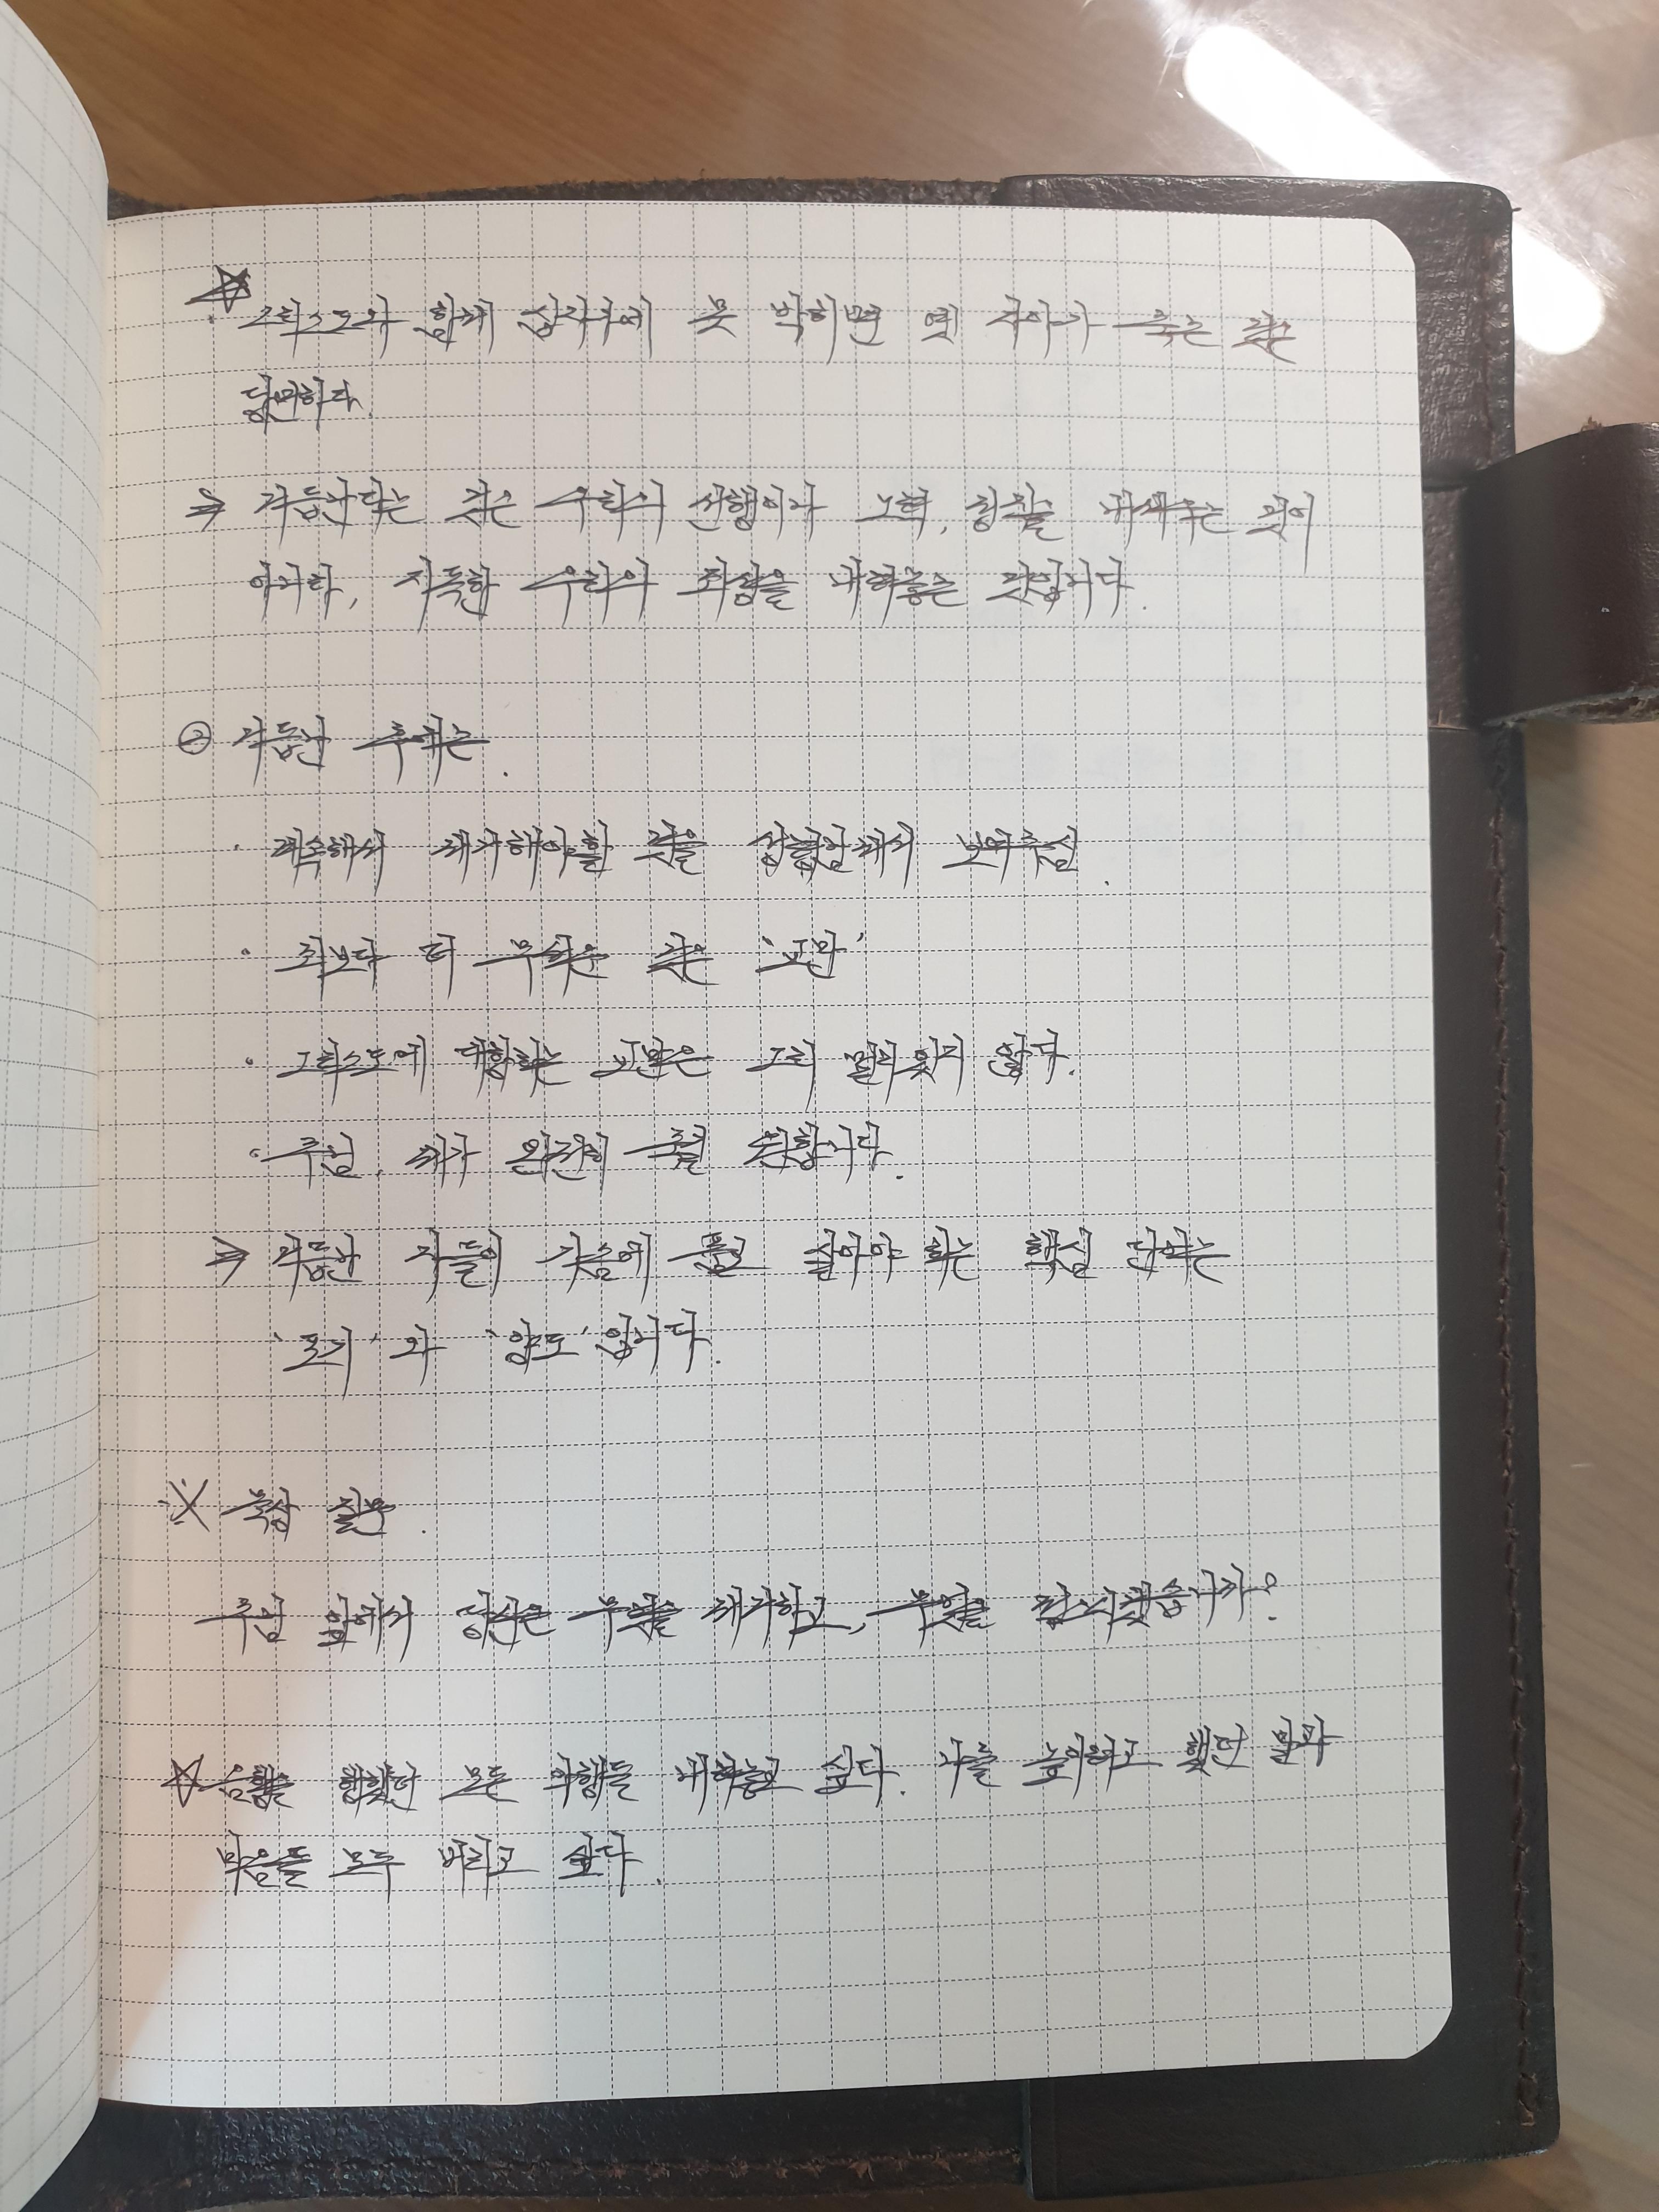 ☆ 그리스도와 함께 십자가에 못 박히면 옛 자아가 죽는 것은
당연하다.
⇒ 거듭난다는 것은 우리의 선행이나 노력, 칭찰을 내세우는 것이
아니라, 지독한 우리의 죄성을 내려놓는 것입니다.
② 거듭난 후에는.
· 계속해서 제거해야할 것을 성령님께서 보여주심.
· 죄보다 더 무서운 것은 '교만'
· 그리스도에 대항하는 교만은 그리 멀리있지 않다.
· 주님, 제가 온전히 죽길 원합니다.
⇒ 거듭난 자들이 가슴에 품고 살아야 하는 핵심 단어는
'포기'와 '양도'입니다.
※ 묵상 질문.
주님 앞에서 당신은 무엇을 제거하고, 무엇을 접으시겠습니까?
☆ 음행을 행했던 모든 악행들 내려놓고 싶다. 나를 높이려고 했던 말과
마음들 모두 버리고 싶다.